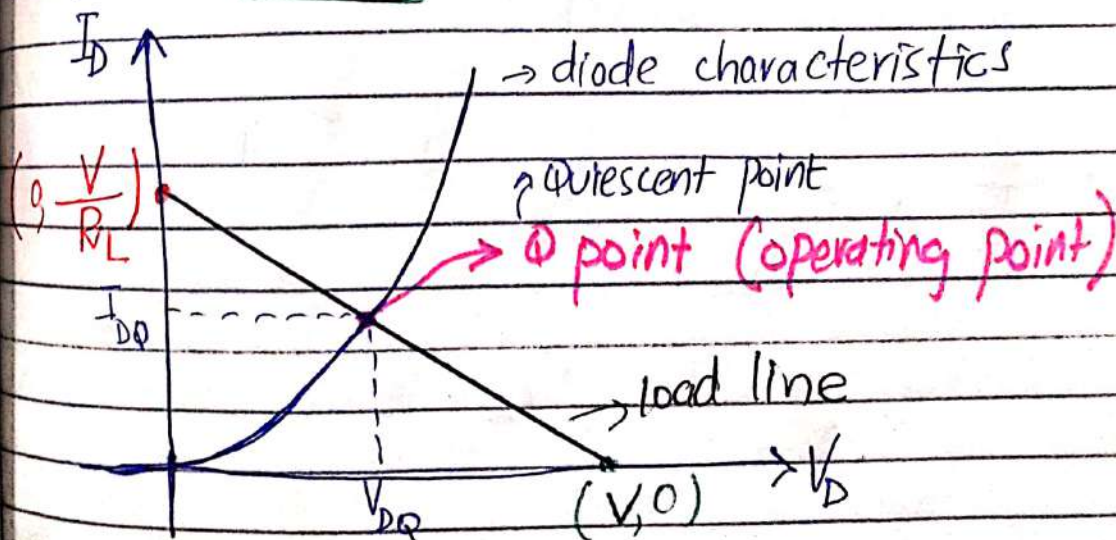 I_D
→ diode characteristics
(0, V/R_L)
Quiescent point
Q point (operating point)
I_DQ
→ load line
V_DQ
(V,0)
V_D